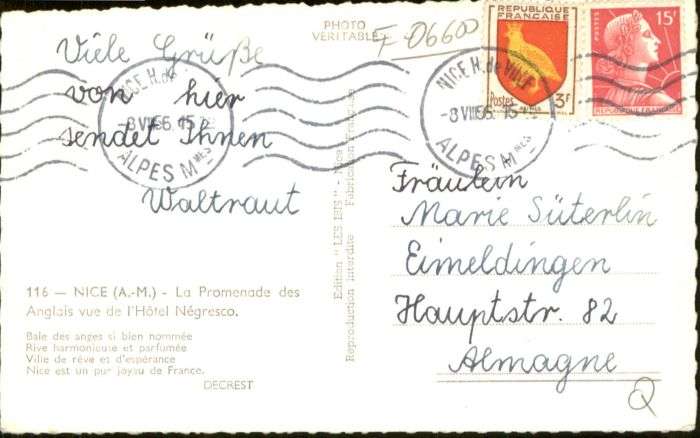 Viele Grüße
von hier
sendet Ihnen
Waltraut
116 — NICE (A.-M.) - La Promenade des
Anglais vue de l'Hôtel Négresco.
Baie des anges si bien nommée
Rive harmonieuse et parfumée
Ville de rêve et d'espérance
Nice est un pur joyau de France.
DECREST
PHOTO
VÉRITABLE
F 06600
Edition "LES IRIS" - Nice
Reproduction interdite Fabrication Française
REPUBLIQUE
FRANÇAISE
Postes
3F
POSTES
15F
REPUBLIQUE FRANÇAISE
NICE H. de VILLE
-8 VIII 56. 15
ALPES MMES
NICE H. de
-8 VII 56. 15
ALPES MMES
Fräulein
Marie Süterlin
Eimeldingen
Hauptstr. 82
Almagne
Q